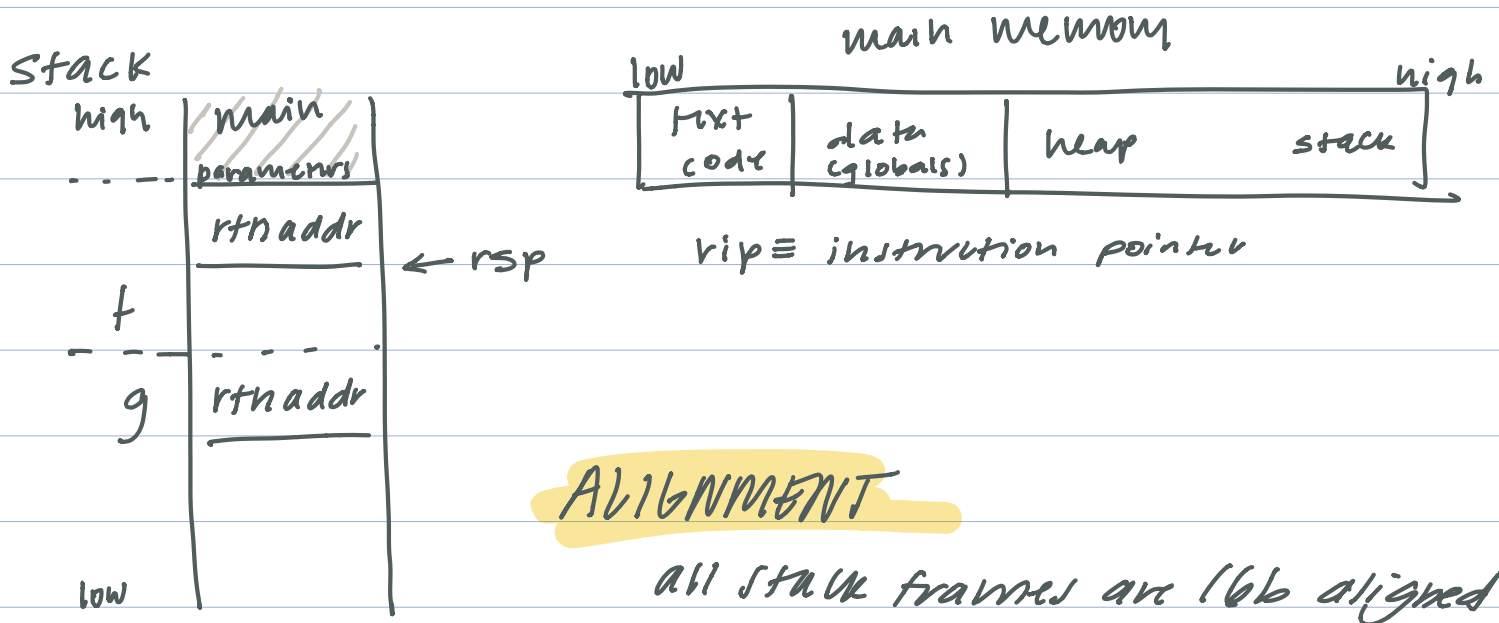 stack
high
main
parameters
rtn addr
← rsp
f
g
rtn addr
low
main memory
low
high
text
code
data
(globals)
heap
stack
rip ≡ instruction pointer
ALIGNMENT
all stack frames are 16b aligned